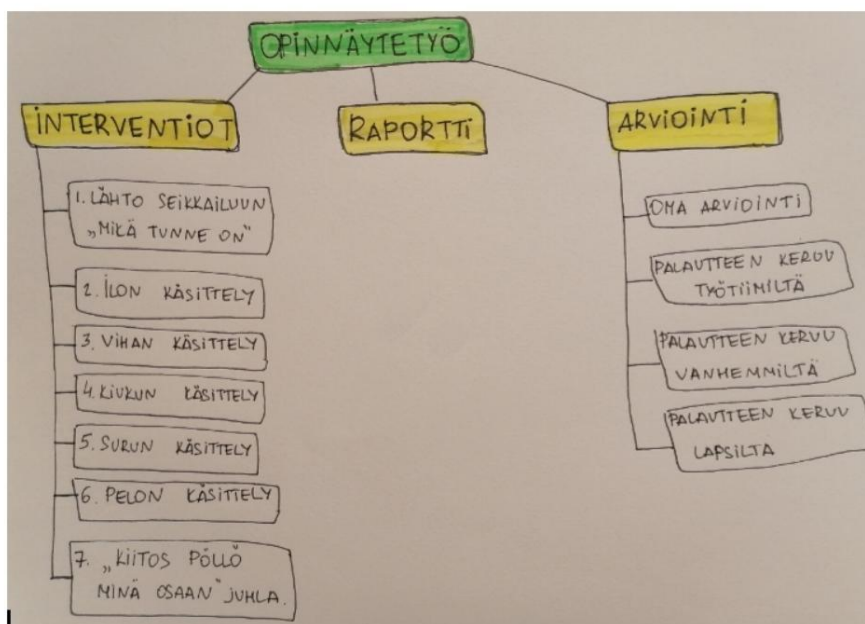 OPINNÄYTETYÖ
INTERVENTIOT
1. LÄHTO SEIKKAILUUN
„MIKÄ TUNNE ON"
2. ILON KÄSITTELY
3. VIHAN KÄSITTELY
4. KIUKUN KÄSITTELY
5. SURUN KÄSITTELY
6. PELON KÄSITTELY
7. „KIITOS PÖLLÖ
MINÄ OSAAN" JUHLA.
RAPORTTI
ARVIOINTI
OMA ARVIOINTI
PALAUTTEEN KERUU
TYÖTIIMILTÄ
PALAUTTEEN KERUU
VANHEMMILTÄ
PALAUTTEEN KERUU
LAPSILTA